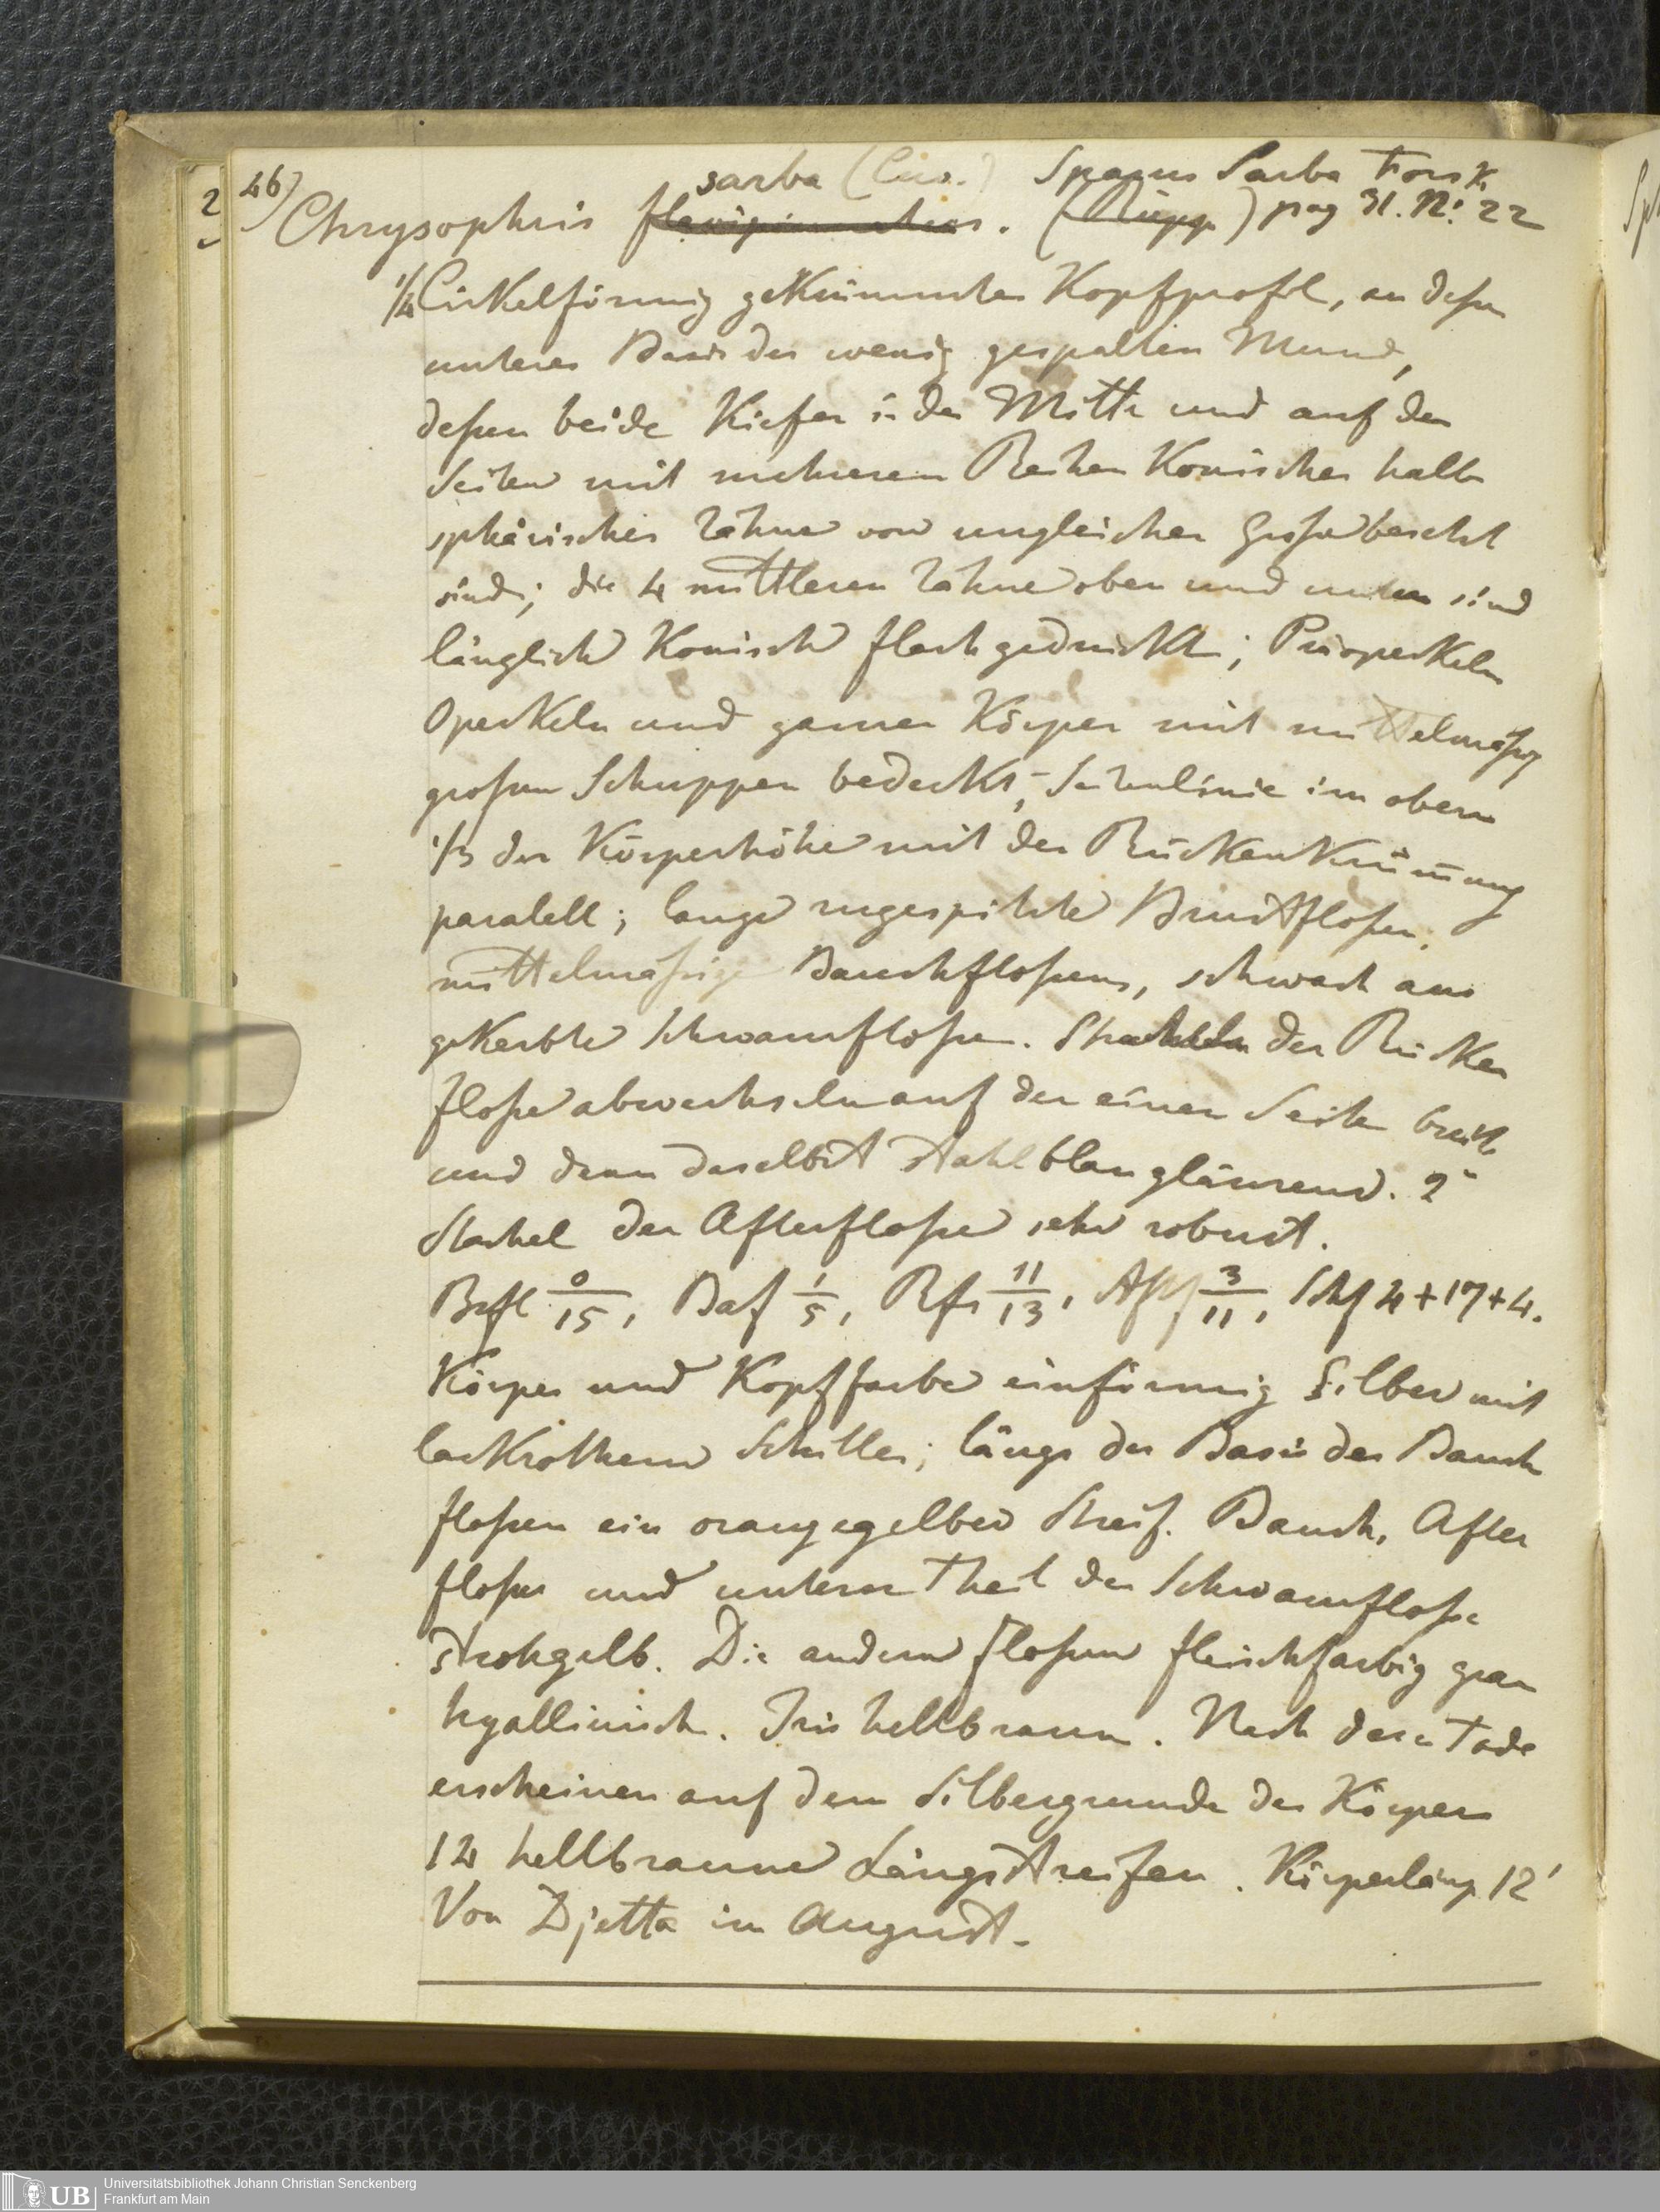 46)
sarba (Cuv.) Sparus Sarba Forsk
Chrysophris. (Rüpp) pag 31. N: 22
1/4 Cirkelförmig gekrümmtes Kopfprofil, an deßen
unterer Basis der wenig gespalten Mund,
deßen beide Kiefer in der Mitte und auf den
Seiten mit mehreren Reihen Konischer halb
sphärischer Zähne von ungleicher Große besetzt
sind; die 4 mittleren Zähne oben und unten sind
länglich Konisch flach gedrückt; Präoperkeln
Operkeln und ganzer Körper mit mittelmäßig
großen Schuppen bedeckt, Seitenlinie im obern
1/3 der Körperhöhe mit der Rückenkrümmung
paralell; lange zugespitzte Brustfloßen,
mittelmäßige Bauchfloßen, schwach aus
gekerbte Schwanzfloße. Stacheln der Rücken
floße abwechseln auf der einen Seite breit
und dann daselbst stahlblau glänzend. 2te
Stachel der Afterfloße sehr robust.
Brfl 0/15, Baf 1/5, Rfs 11/13, Aff 3/11, Schf 4+17+4.
Körper und Kopffarbe einförmig Silber mit
lackrothem Schiller; längs der Basis der Bauch
floßen ein orangegelber Streif. Bauch, After
floßen und unterer Theil der Schwanzfloße
Strohgelb. Die andern Floßen fleischfarbig grau
hyallinisch. Iris hellbraun. Nach dem Tode
erscheinen auf dem Silbergrunde des Körpers
14 hellbraune Längsstreifen. Körperlänge 12'
Von Djetta im August.
2
Universitätsbibliothek Johann Christian Senckenberg
Frankfurt am Main
UB